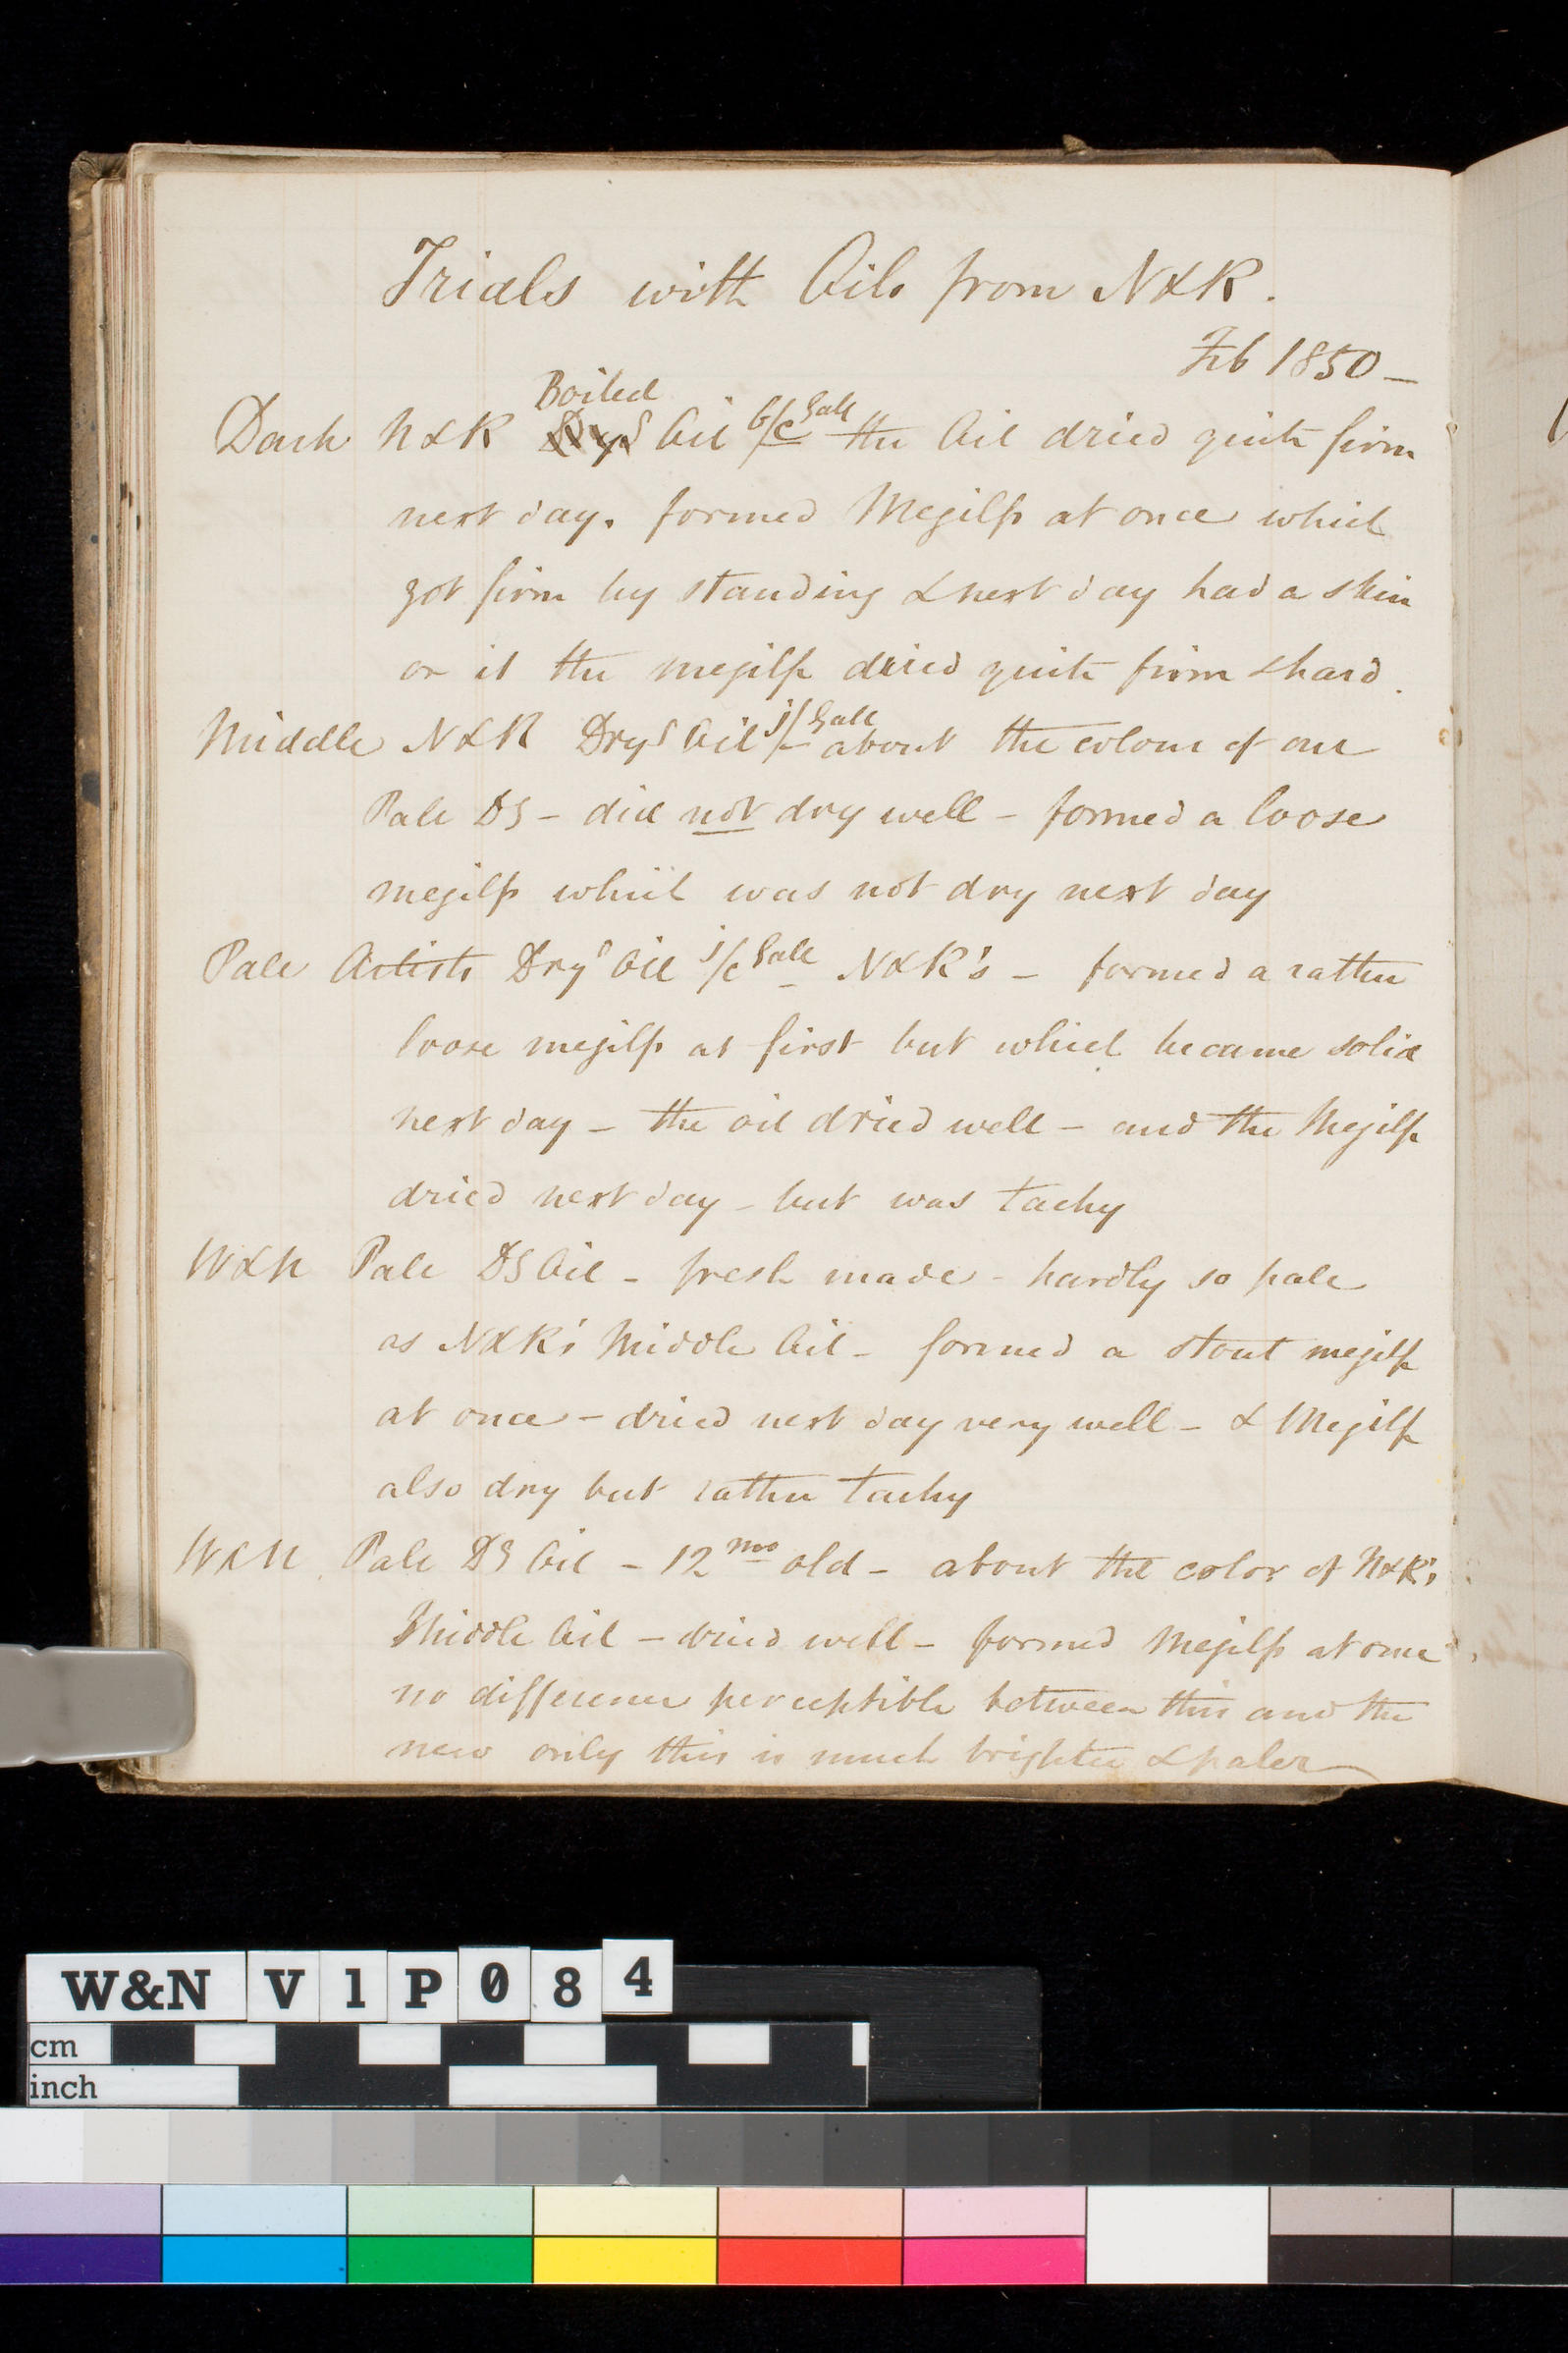 Trials with Oils from N&K.
Feb 1850 —
Boiled
Dark N&K Dryg Oil 6/ Gall the Oil dried quite firm
next day. formed Megilp at once which
got firm by standing & next day had a skin
on it the megilp dried quite firm & hard.
Middle N&K Dryg Oil Gall about the colour of our
Pale DG – did not dry well – formed a loose
megilp which was not dry next day
Pale Artists Dryg Oil Gall N&K's – formed a rather
loose megilp at first but which became solid
next day – the oil dried well – and the Megilp
dried next day – but was tacky
W&N Pale DG Oil – fresh made – hardly so pale
as N&K's Middle Oil – formed a stout megilp
at once – dried next day very well – & Megilp
also dry but rather tacky
W&N Pale DG Oil – 12 mos old – about the color of N&K's
Middle Oil – dried well – formed Megilp at once
no difference perceptible between this and the
new only this is much brighter & paler
W&N V1P084
cm
inch